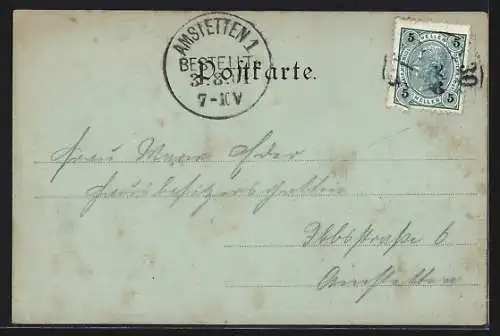 AMSTETTEN 1
BESTELLT
3.8.01
7-10V
Postkarte.
5 HELLER 5
5 HELLER 5
Frau Marie Eder
Hausbesitzersgattin
Ybbsstraße 6
Amstetten